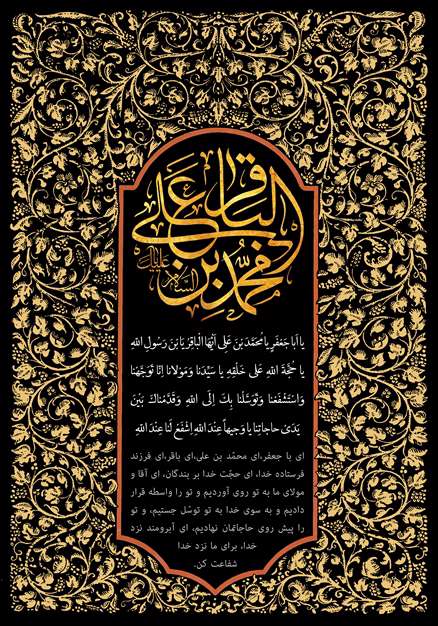 محمد بن علی الباقر
علیک السلام
یا أَبا جَعفَرٍ یا مُحَمَّدَ بنَ عَلِی أَیُّهَا الْباقِرُ یَا بْنَ رَسُولِ اللهِ
یا حُجَّةَ اللهِ عَلی خَلْقِهِ یا سَیِّدَنا وَ مَوْلانا إِنّا تَوَجَّهْنا
وَ اسْتَشْفَعْنا وَ تَوَسَّلْنا بِكَ إِلَی اللهِ وَ قَدَّمْناكَ بَیْنَ
یَدَیْ حاجاتِنا یا وَجیهاً عِنْدَ اللهِ اِشْفَعْ لَنا عِنْدَ اللهِ
ای یا جعفر،ای محمّد بن علی،ای باقر،ای فرزند
فرستاده خدا، ای حجّت خدا بر بندگان، ای آقا و
مولای ما به تو روی آوردیم و تو را واسطه قرار
دادیم و به سوی خدا به تو توسّل جستیم، و تو
را پیش روی حاجاتمان نهادیم، ای آبرومند نزد
خدا، برای ما نزد خدا
شفاعت کن.